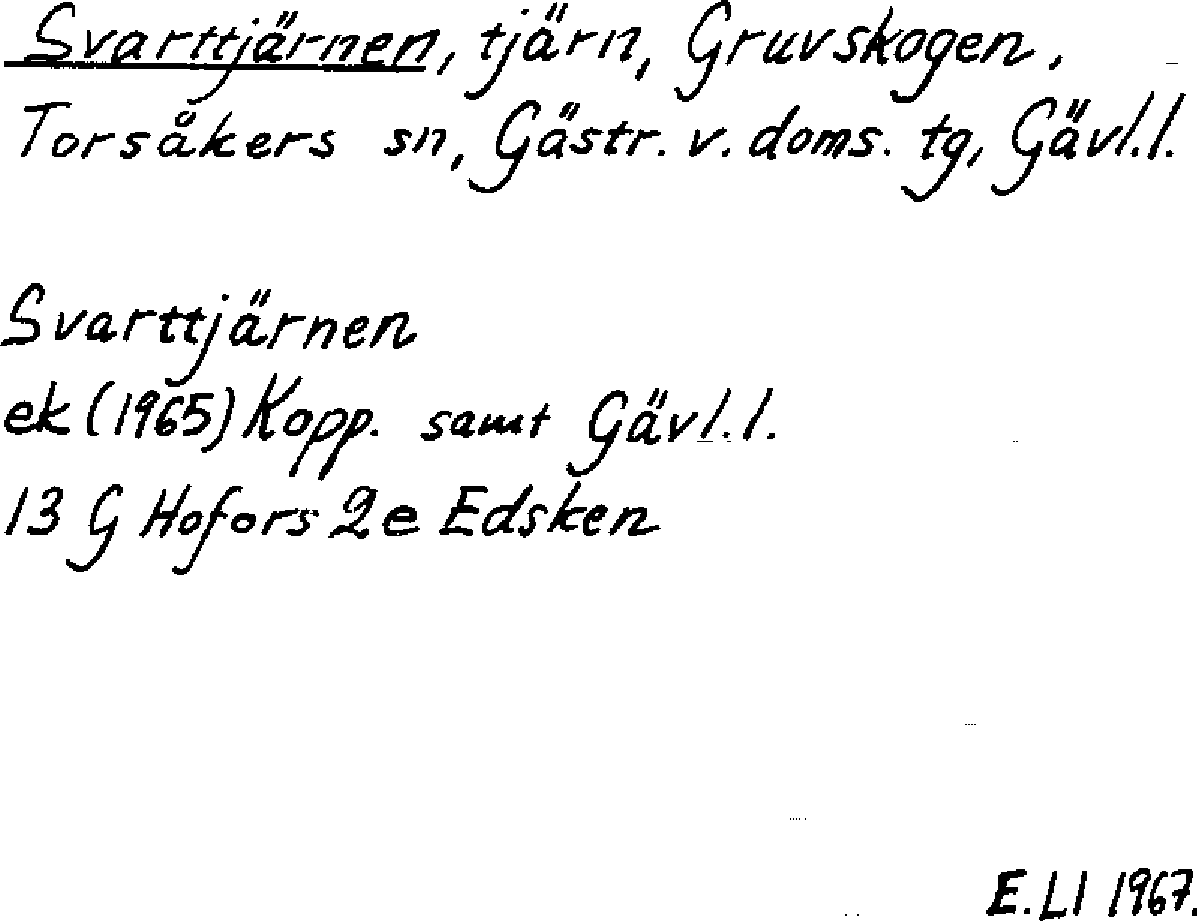 Svarttjärnen, tjärn, Gruvskogen,
Torsåkers sn, Gästr. v. doms. tg, Gävl.l.
Svarttjärnen
ek (1965) Kopp. samt Gävl.l.
13 G Hofors 2e Edsken
E.Ll 1967.